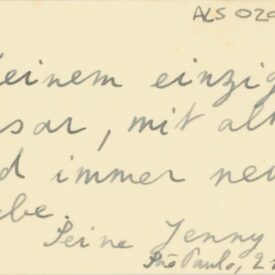 ALS 020
einem einzig
sar, mit alt
d immer neu
be.
Deine Jenny
São Paulo, 2